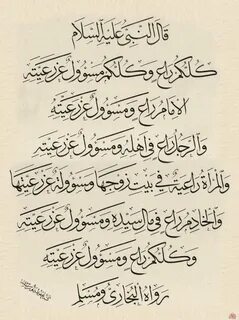 قال النبي عليه السلام
كلكم راع وكلكم مسؤول عن رعيته
الإمام راع ومسؤول عن رعيته
والرجل راع في أهله ومسؤول عن رعيته
والمرأة راعية في بيت زوجها ومسؤولة عن رعيتها
والخادم راع في مال سيده ومسؤول عن رعيته
وكلكم راع ومسؤول عن رعيته
رواه البخاري ومسلم